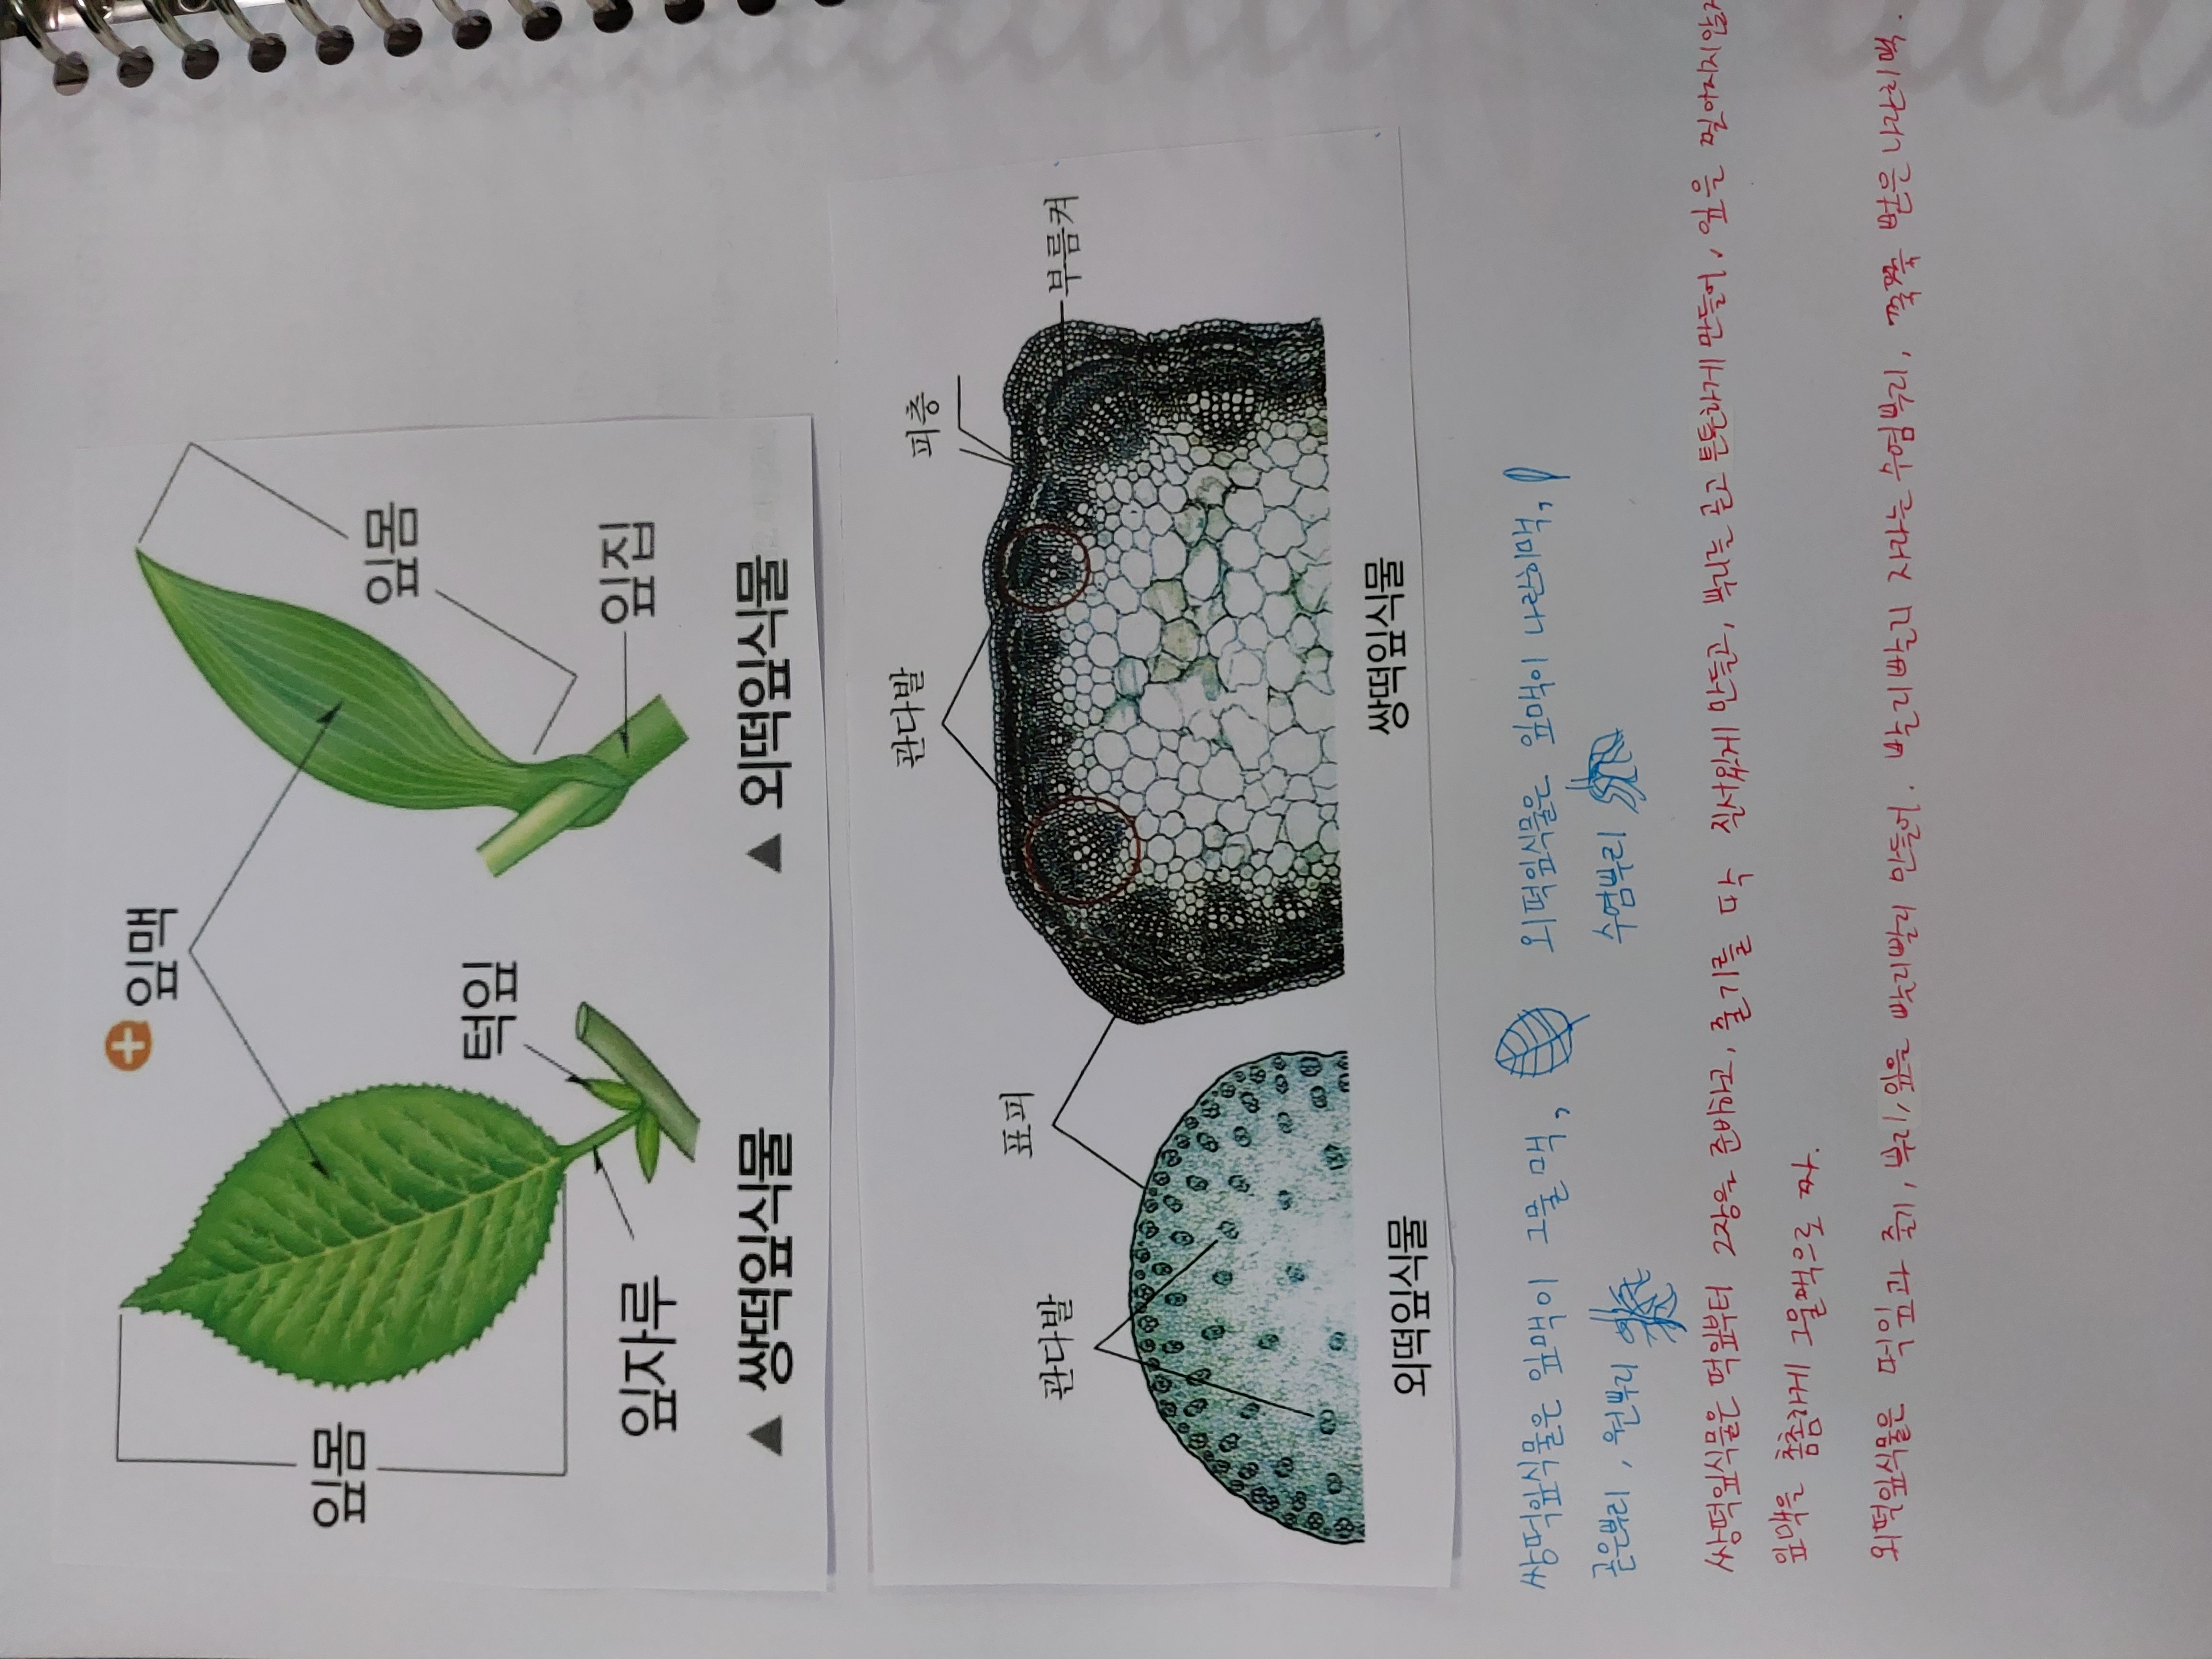 잎맥
잎몸
잎몸
턱잎
잎자루
잎집
▲ 쌍떡잎식물
▲ 외떡잎식물
관다발
피층
부름켜
표피
관다발
외떡잎식물
쌍떡잎식물
쌍떡잎식물은 잎맥이 그물맥,
외떡잎식물은 잎맥이 나란이맥,
곧은뿌리, 원뿌리
수염뿌리
쌍떡잎식물은 떡잎부터 2장을 준비하고, 줄기를 다 질서있게 만들고, 뿌리는 곧고 튼튼하게 만들어, 잎을
잎맥을 촘촘하게 그물맥으로 짜.
외떡잎식물은 떡잎과 줄기, 뿌리, 잎을 빨리빨리 만들어. 빨리빨리 자라는 수염뿌리, 쭉쭉 뻗은 나란이맥.